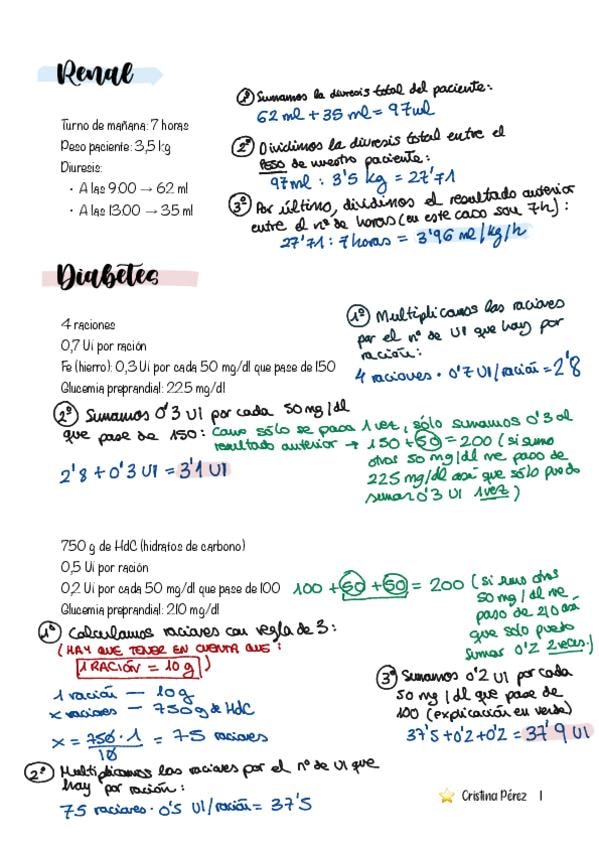 Renal
Turno de mañana: 7 horas
Peso paciente: 3,5 kg
Diuresis:
• A las 9:00 → 62 ml
• A las 13:00 → 35 ml
1º Sumamos la diuresis total del paciente:
62 ml + 35 ml = 97 ml
2º Dividimos la diuresis total entre el
PESO de nuestro paciente:
97 ml : 3'5 kg = 27'71
3º Por último, dividimos el resultado anterior
entre el nº de horas (en este caso son 7h):
27'71 : 7 horas = 3'96 ml/kg/h
Diabetes
4 raciones
0,7 Ui por ración
Fe (hierro): 0,3 Ui por cada 50 mg/dl que pase de 150
Glucemia preprandial: 225 mg/dl
1º Multiplicamos las raciones
por el nº de UI que hay por
ración:
4 raciones · 0'7 UI/ración = 2'8
2º Sumamos 0'3 UI por cada 50 mg/dl
que pase de 150: Como sólo se pasa 1 vez, sólo sumamos 0'3 al
resultado anterior → 150 + 50 = 200 (si sumo
otros 50 mg/dl me paso de
225 mg/dl así que sólo puedo
sumar 0'3 UI 1 vez)
2'8 + 0'3 UI = 3'1 UI
750 g de HdC (hidratos de carbono)
0,5 Ui por ración
0,2 Ui por cada 50 mg/dl que pase de 100
Glucemia preprandial: 210 mg/dl
100 + 50 + 50 = 200 (si sumo otros
50 mg/dl me
paso de 210 así
que solo puedo
sumar 0'2 2 veces.)
1º Calculamos raciones con regla de 3:
(HAY QUE TENER EN CUENTA QUE:
1 RACIÓN = 10 g)
1 ración — 10g
x raciones — 750g de HdC
x = 750 · 1 / 10 = 75 raciones
2º Multiplicamos las raciones por el nº de UI que
hay por ración:
75 raciones · 0'5 UI/ración = 37'5
3º Sumamos 0'2 UI por cada
50 mg/dl que pase de
100 (explicación en verde)
37'5 + 0'2 + 0'2 = 37'9 UI
Cristina Pérez 1